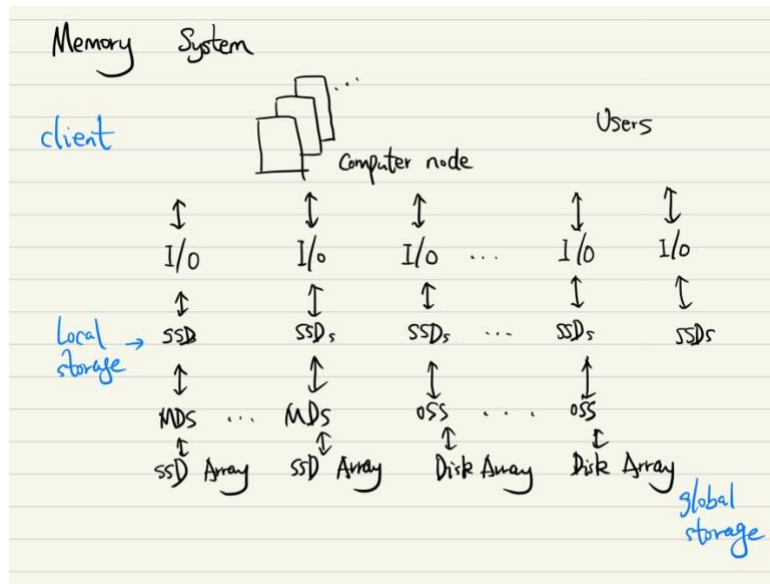 Memory System
...
client
Users
Computer node
I/o I/o I/o ... I/o I/o
Local storage → SSD SSDs SSDs ... SSDs SSDs
MDS ... MDS OSS .... OSS
SSD Array SSD Array Disk Array Disk Array
global storage